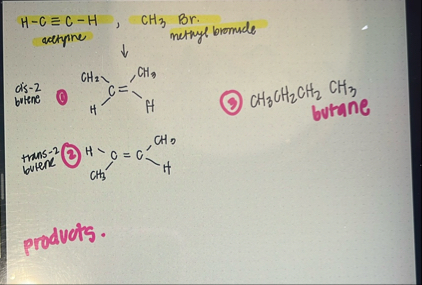 H-C≡C-H , CH3 Br.
acetylne methyl bromide
↓
cis-2 butene ① CH3 CH3
C=
H H
③ CH3CH2CH2 CH3
butane
trans-2 butene ② H CH3
C=C
CH3 H
products.